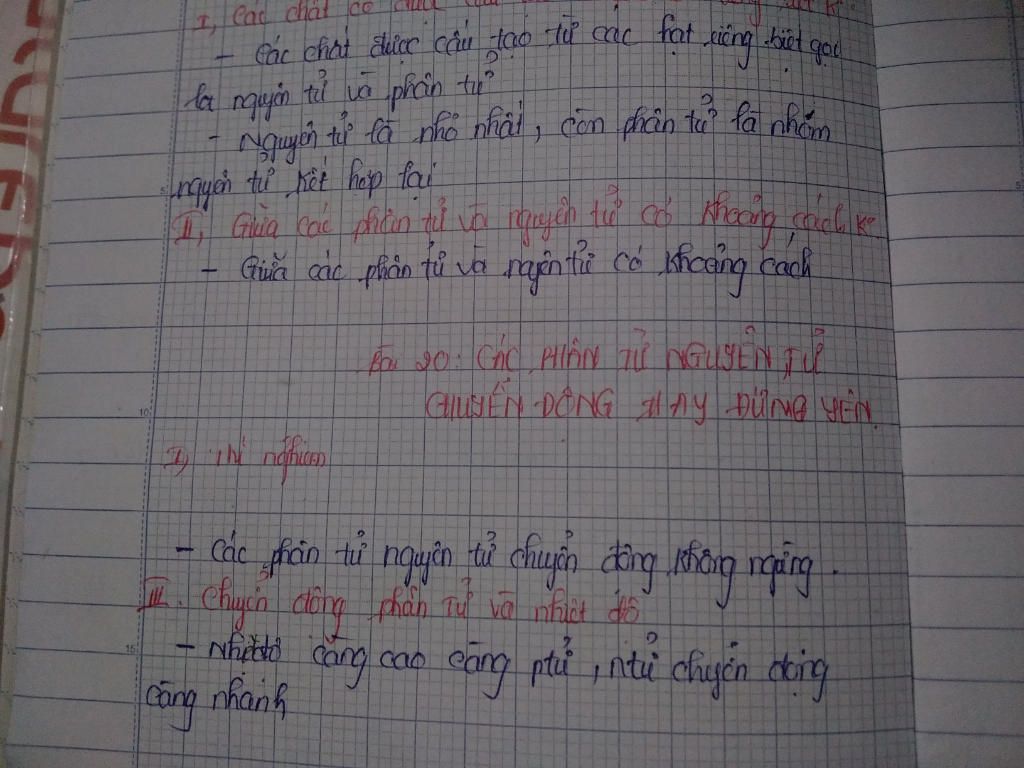 I, Các chất có
- Các chất được cấu tạo từ các hạt riêng biệt gọi
là nguyên tử và phân tử
- Nguyên tử là nhỏ nhất, còn phân tử là nhóm
nguyên tử kết hợp lại
II, Giữa các phân tử và nguyên tử có khoảng cách ko
- Giữa các phân tử và ngyên tử có khoảng cách
Bài 20: CÁC PHÂN TỬ NGUYÊN TỬ
CHUYỂN ĐỘNG HAY ĐỨNG YÊN
I, Thí nghiệm
- Các phân tử nguyên tử chuyển động không ngừng.
III. Chuyển động phân tử và nhiệt độ
- Nhiệt độ càng cao càng ptử, ntử chuyển động
càng nhanh